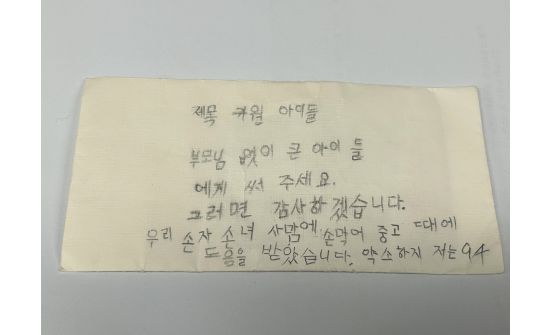 제목 아이들
부모님 없이 큰 아이 들
에게 써 주세요.
그러면 감사하겠습니다.
우리 손자 손녀 중고 때에
도움을 받았습니다. 약소하지 저는 94